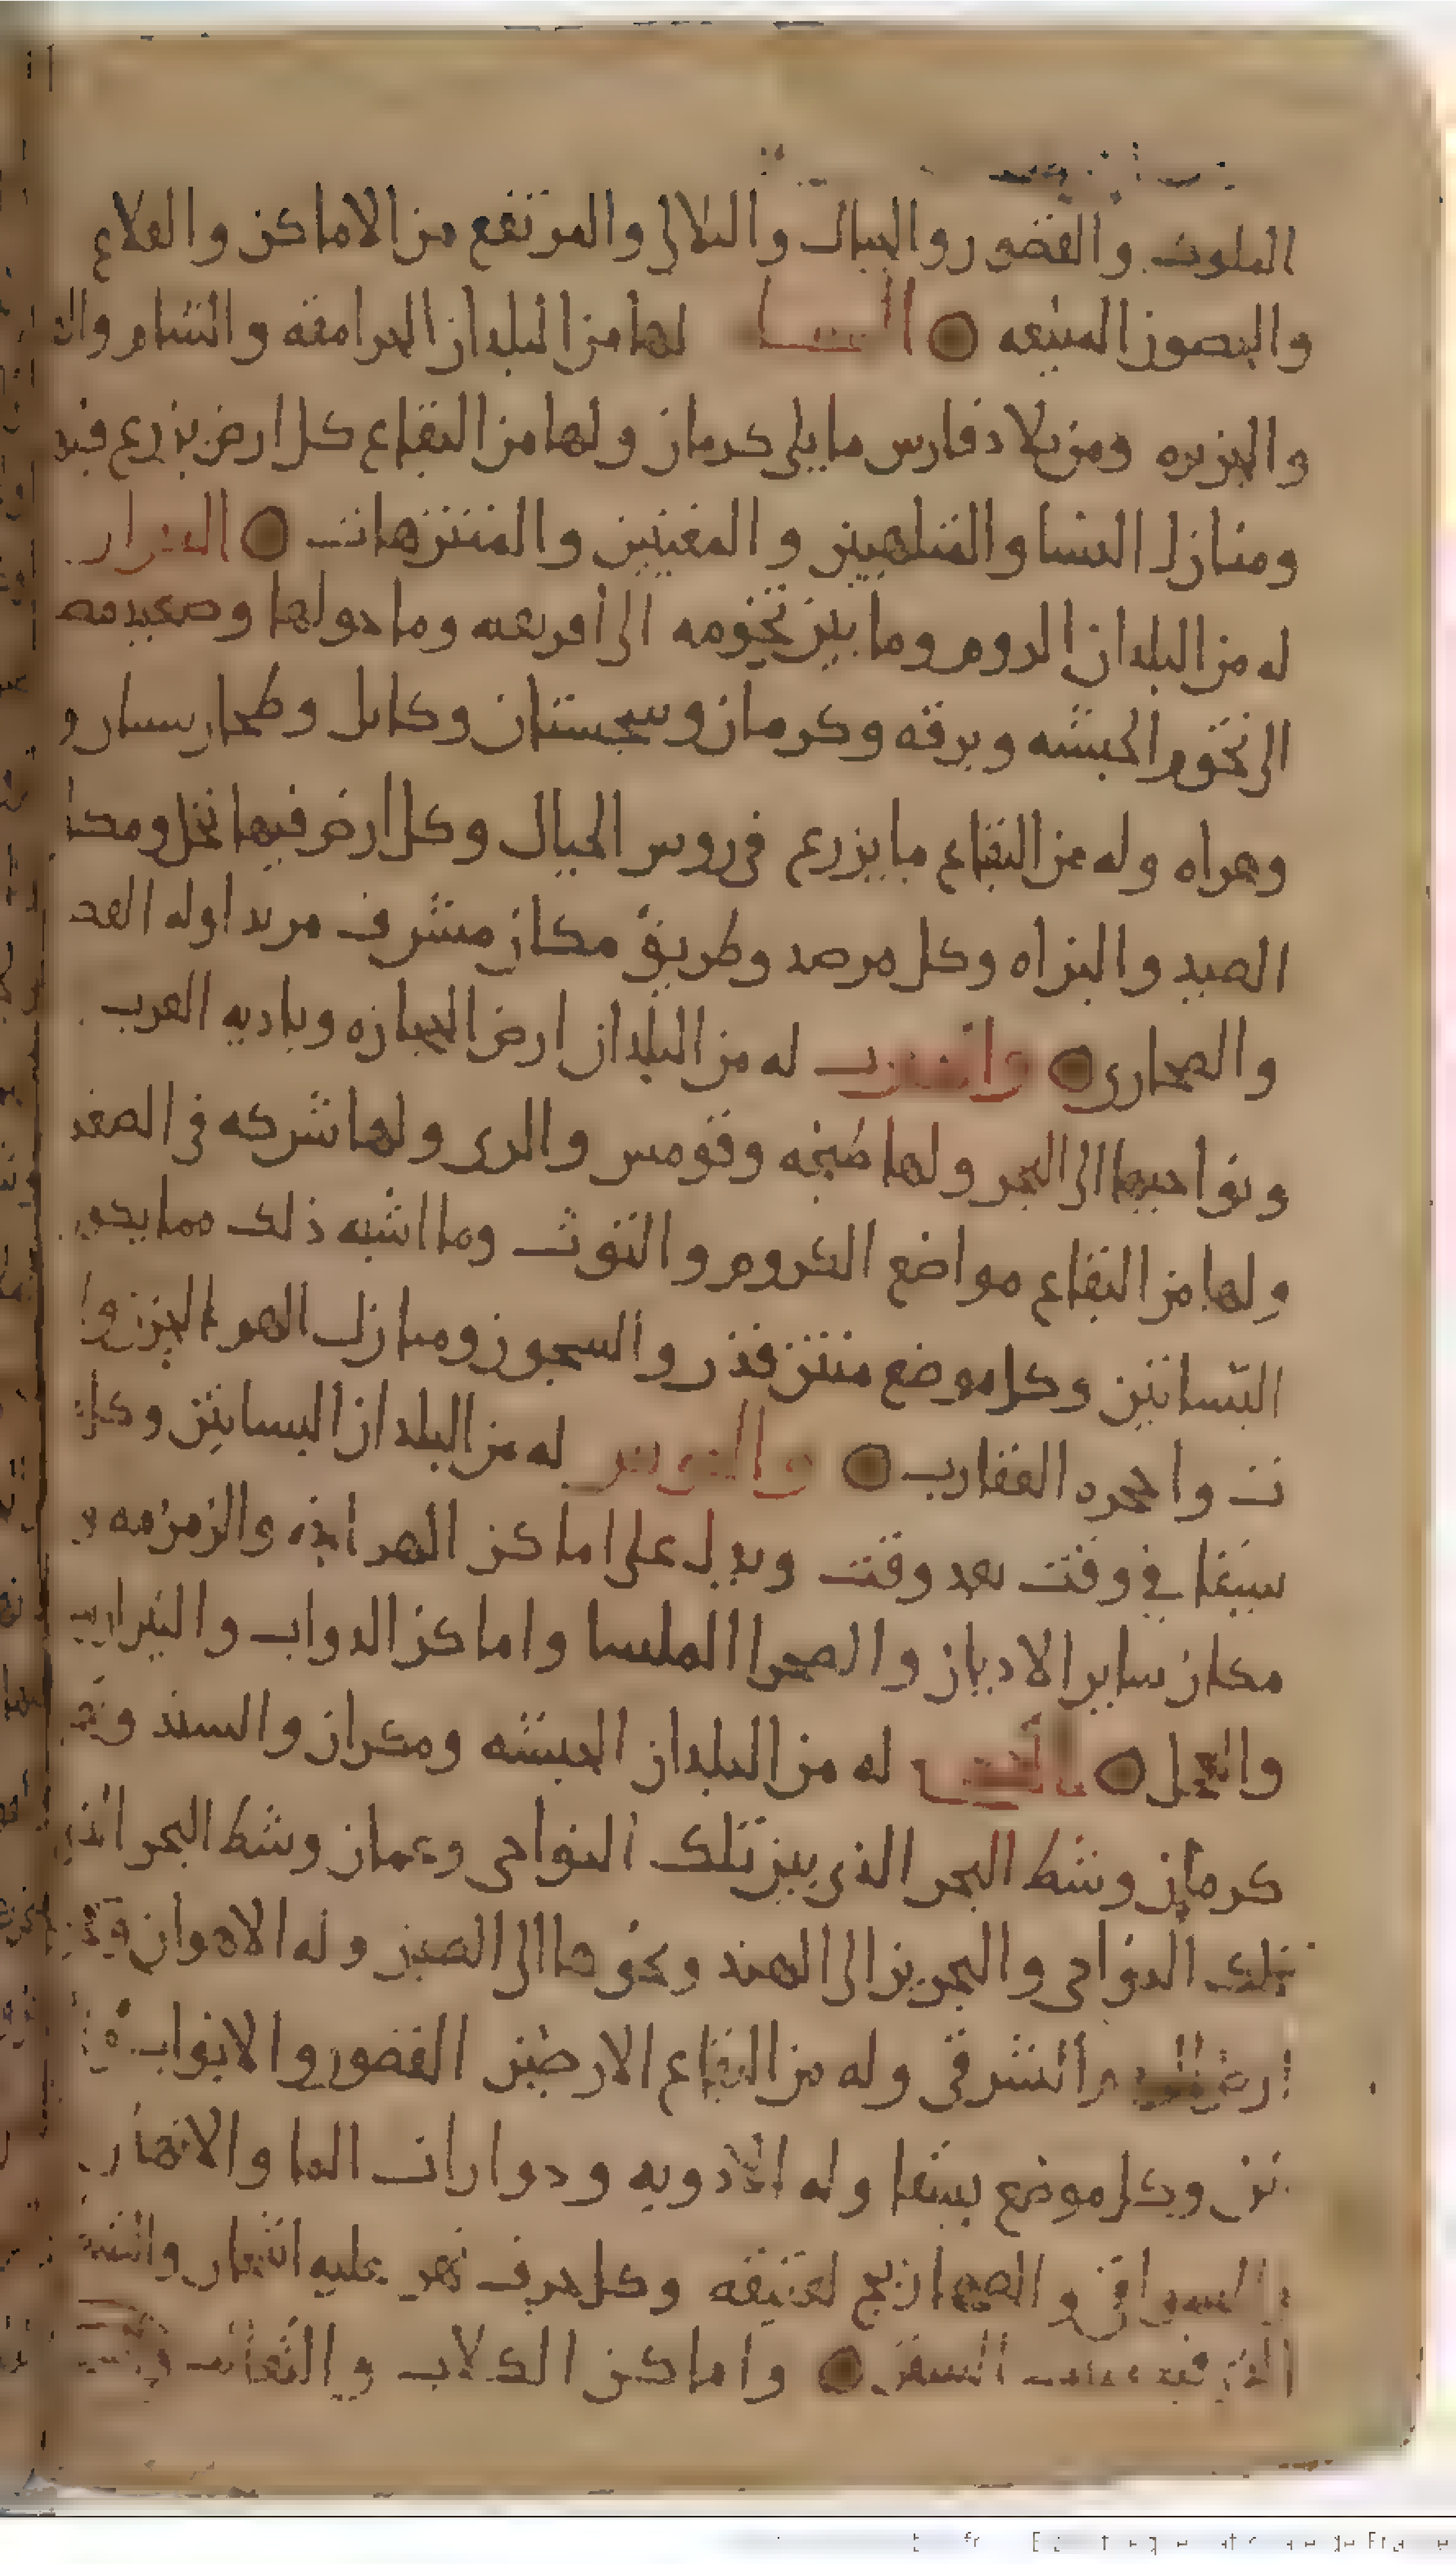 الملوك والقصور والجبال والتلال والمرتفع من الاماكن والقلاع
والحصون المنيعه السنبله لها من البلدان الجرامقه والشام
والجزيره ومن بلاد فارس ما يلى كرمان ولها من البقاع كل ارض يزرع فيه
ومنازل النسا والمتلهيين والمغنيين والمنتزهات الميزان
له من البلدان الروم وما بين تخومه الى افريقيه وما حولها وصعيد مصر
الى تخوم الحبشه وبرقه وكرمان وسجستان وكابل وطخارستان و
وهراه وله من البقاع ما يزرع فى روس الجبال وكل ارض فيها نخل ومكا
الصيد والبزاه وكل مرصد وطريق مكان مشرف
والصحارى والعقرب له من البلدان ارض الحجازه وباديه العرب
ونواحيها الى البحر ولها طنجه وقومس والرى ولها شركه فى الصغد
ولها من البقاع مواضع الكروم والتوث وما اشبه ذلك مما يكون
البساتين وكل موضع منتن قذر والسجون ومنازل الهم الحزن وا
ت واجحره العقارب والقوس له من البلدان البساتين وكل
سيقا فى وقت بعد وقت ويدل على اماكن الهرابذه والزمزمه و
مكان ساير الاديان والصحرا الملسا واماكن الدواب والثيران
والعجل الجدى له من البلدان الحبشه ومكران والسند
كرمان وشط البحر الذى بين تلك النواحى وعمان وشط البحر الذى
تلك النواحى والبحرين الى الهند ونخوها الى الصين وله الاهواز
ارض والشرقى وله من البقاع الارضين القصور والابواب
وكل موضع يسقا وله الاوديه ودوارات الما والانهار
السواقى والصهاريج لعتيقه وكل حرف نهر عليه اشجار
الذى فيه السفن واماكن الكلاب والثعالب